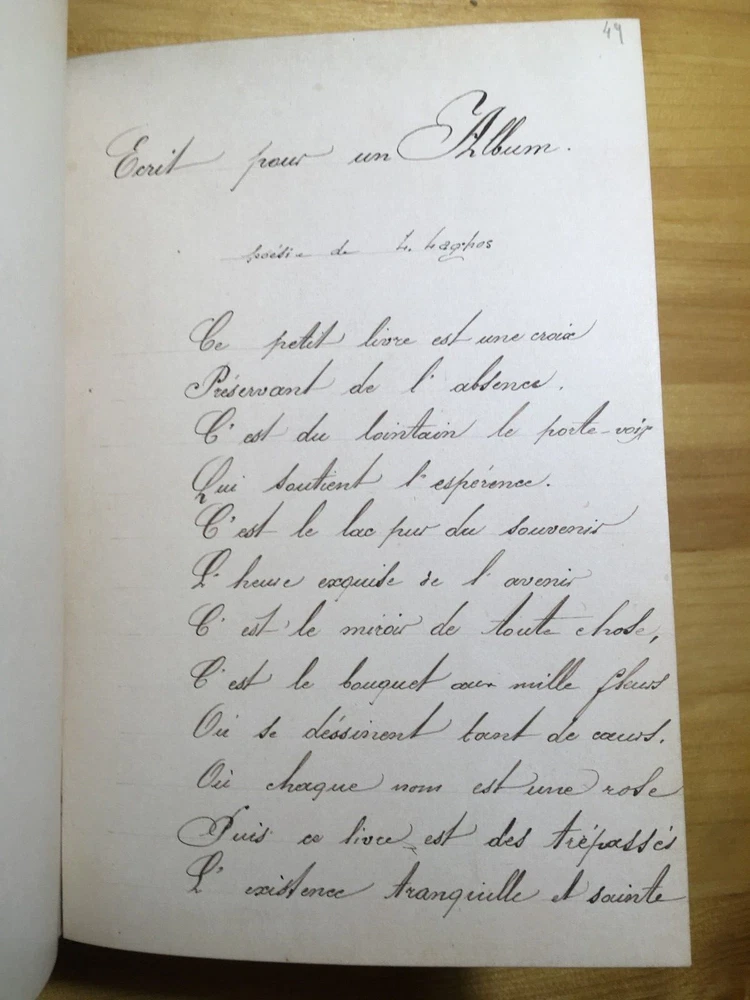 49
Ecrit pour un Album.
poésie de
Ce petit livre est une croix
Préservant de l'absence.
C'est du lointain le porte-voix
Qui soutient l'espérence.
C'est le lac pur du souvenir
L'heure exquise de l'avenir
C'est le miroir de toute chose,
C'est le bouquet aux mille fleurs
Où se déssinent tant de cœurs.
Où chaque nom est une rose
Puis ce livre est des trépassés
L'existence tranquille et sainte